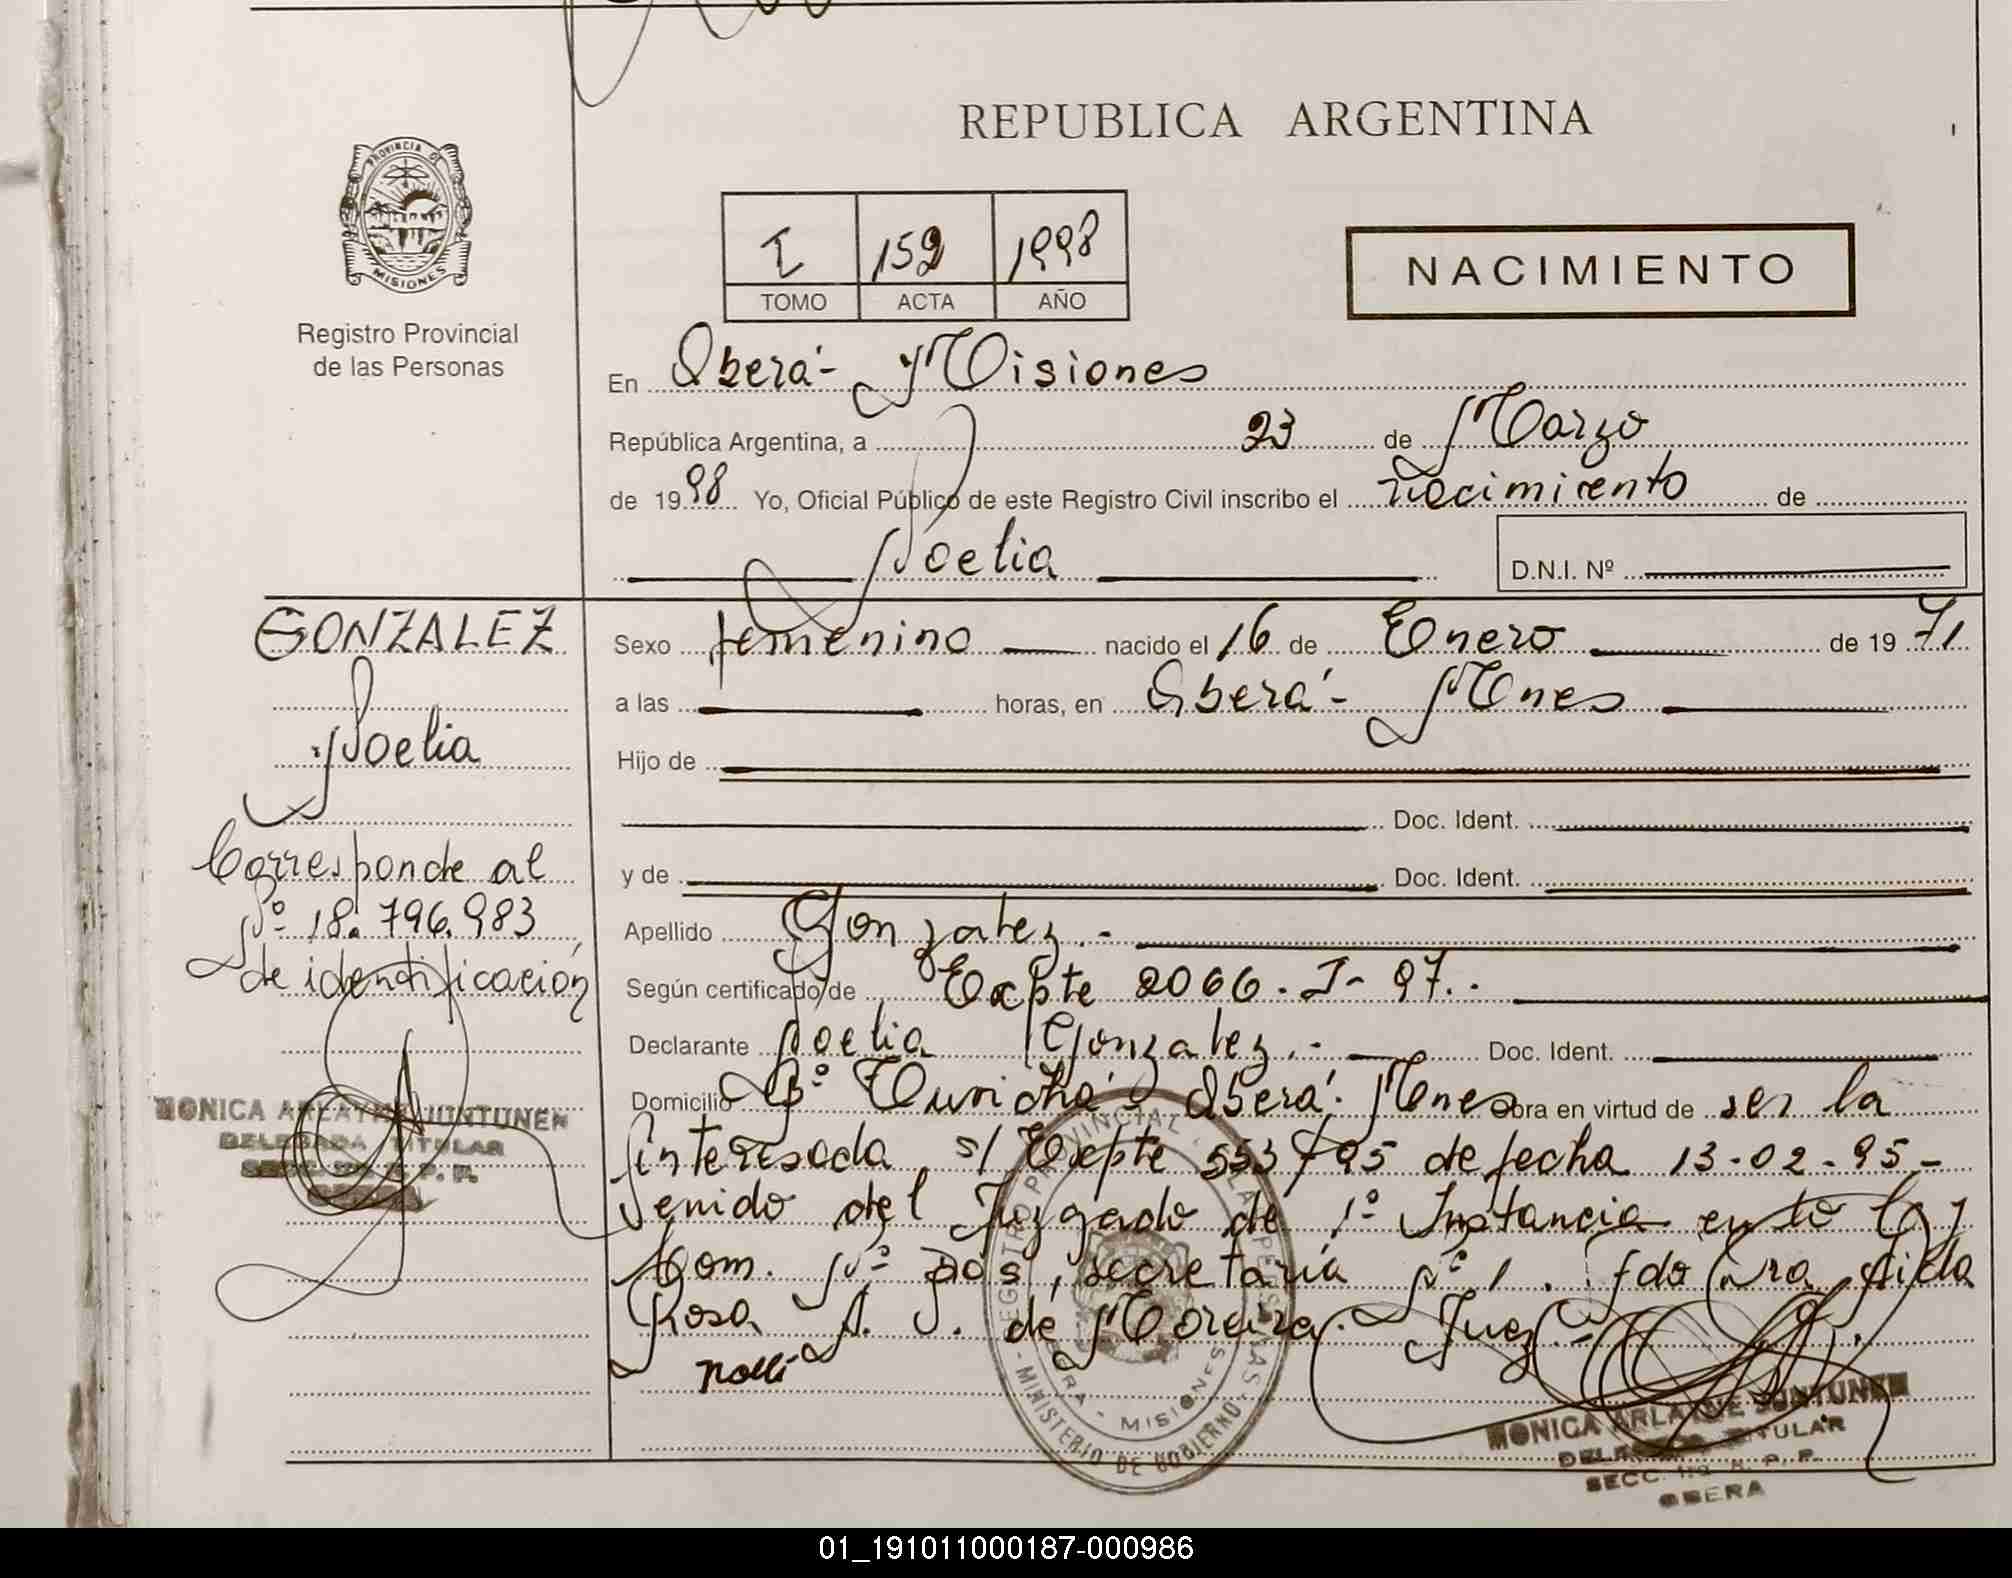 REPUBLICA ARGENTINA
PROVINCIA DE
MISIONES
Registro Provincial
de las Personas
I 152 1998
TOMO ACTA AÑO
NACIMIENTO
En Oberá - Misiones
República Argentina, a 23 de Marzo
de 1998 Yo, Oficial Público de este Registro Civil inscribo el nacimiento de
Noelia
D.N.I. Nº
GONZALEZ
Noelia
Corresponde al
Nº 18.796.983
de identificación
MONICA ARLAYNE JUNTUNEN
DELEGADA TITULAR
Sexo femenino nacido el 16 de Enero de 1971
a las horas, en Oberá - Mnes
Hijo de
Doc. Ident.
y de Doc. Ident.
Apellido Gonzalez.-
Según certificado de Expte 2066-I-97.-
Declarante Noelia Gonzalez.- Doc. Ident.
Domicilio Bº Oberá. Mnes Obra en virtud de ser la
interesada s/ Expte 553/95 de fecha 13-02-95-
venido del Juzgado de 1º Instancia en lo C y
Com. Nº Dos, secretaría Nº 1. Fdo Dra Aida
Rosa A. J. de Moreira. Juez.-
REGISTRO PROVINCIAL DE LAS PERSONAS
OBERA - MISIONES
MINISTERIO DE GOBIERNO
MONICA ARLAYNE JUNTUNEN
DELEGADA TITULAR
SECC. 1ra R. P. P.
OBERA
01_191011000187-000986